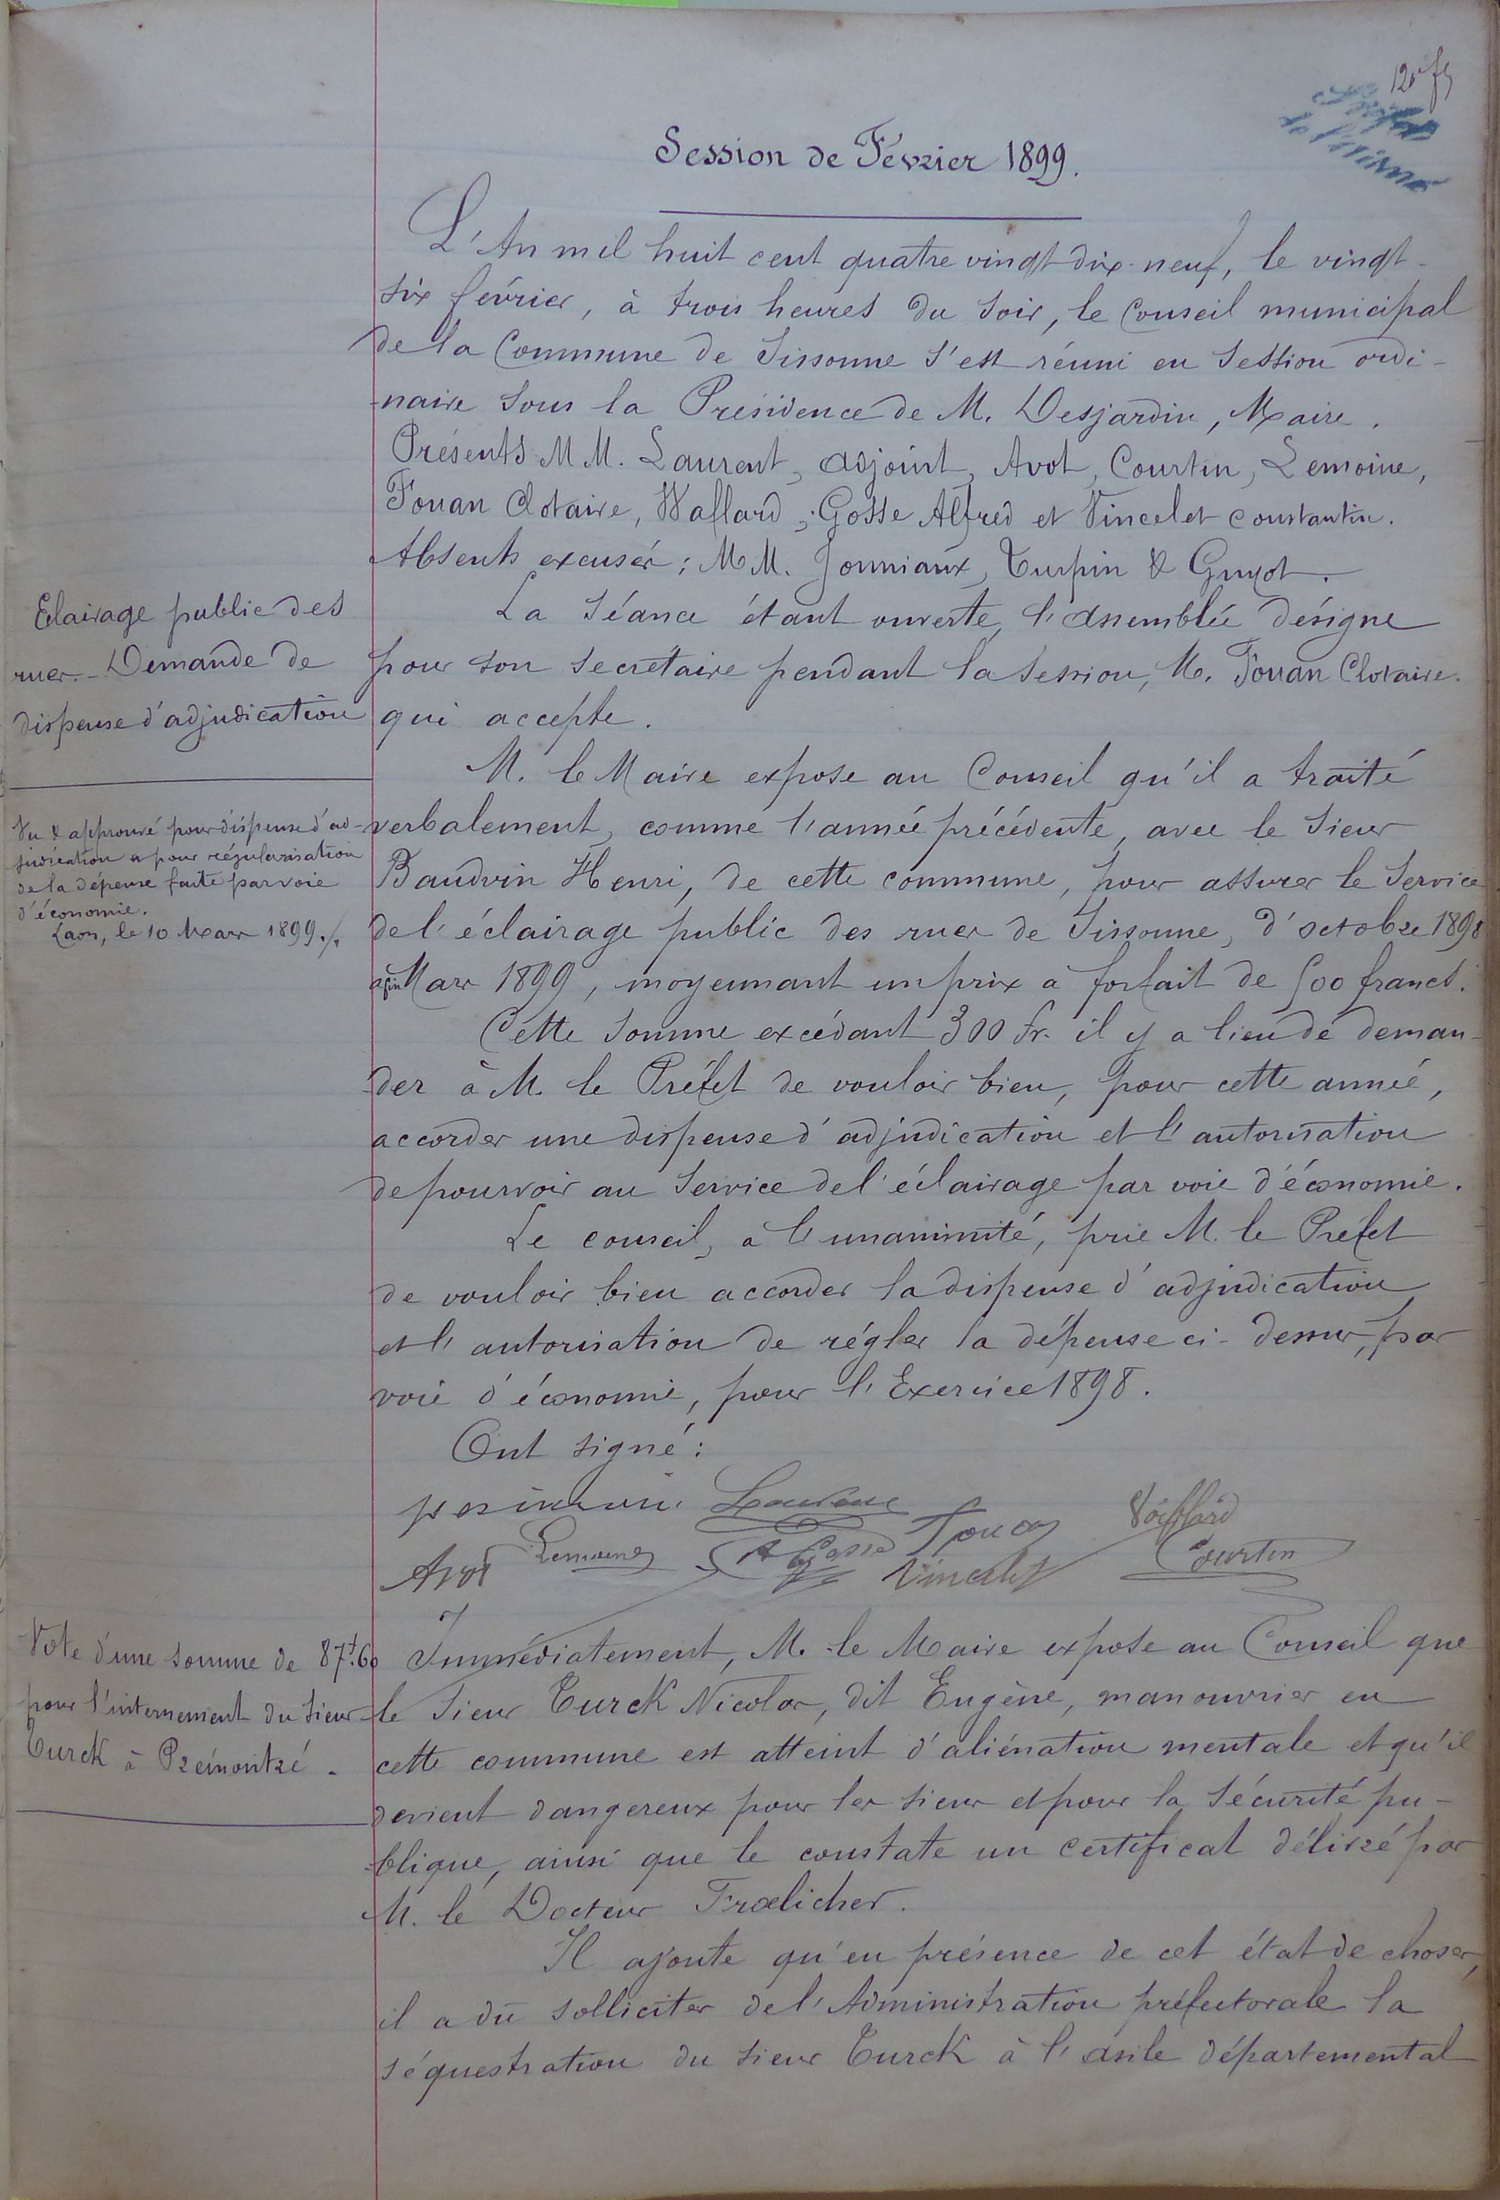 Session de Février 1899.
L'An mil huit cent quatre vingt dix-neuf, le vingt-
six février, à trois heures du soir, le Conseil municipal
de la Commune de Sissonne s'est réuni en session ordi-
-naire sous la Présidence de M. Desjardin, Maire.
Présents MM. Laurent, adjoint, Avot, Courtin, Lemoine,
Fouan Clotaire, Waflard, Gosse Alfred et Vincelet Constantin.
Absents excusés : MM. Jonniaux, Turpin & Guyot.
La séance étant ouverte, l'assemblée désigne
pour son secrétaire pendant la session, M. Fouan Clotaire.
qui accepte.
Eclairage public des
rues. - Demande de
dispense d'adjudication
M. le Maire expose au Conseil qu'il a traité
verbalement, comme l'année précédente, avec le sieur
Baudvin Henri, de cette commune, pour assurer le service
de l'éclairage public des rues de Sissonne, d'octobre 1898
à fin Mars 1899, moyennant un prix à forfait de 500 francs.
Vu & approuvé pour dispense d'ad-
judication & pour régularisation
de la dépense faite par voie
d'économie.
Laon, le 10 Mars 1899./.
Cette somme excédant 300 fr. il y a lieu de deman-
-der à M. le Préfet de vouloir bien, pour cette année,
accorder une dispense d'adjudication et l'autorisation
de pourvoir au service de l'éclairage par voie d'économie.
Le conseil, à l'unanimité, prie M. le Préfet
de vouloir bien accorder la dispense d'adjudication
et l'autorisation de régler la dépense ci-dessus, par
voie d'économie, pour l'Exercice 1898.
Ont signé :
Laurent
Fouan
Waflard
Avot
Lemoine
A Gosse
Vincelet
Courtin
Vote d'une somme de 87f.60
pour l'internement du sieur
Turck à Prémontré.
Immédiatement, M. le Maire expose au Conseil que
le sieur Turck Nicolas, dit Eugène, manouvrier en
cette commune est atteint d'aliénation mentale et qu'il
devient dangereux pour les siens et pour la sécurité pu-
-blique, ainsi que le constate un certificat délivré par
M. le Docteur Frœlicher.
Il ajoute qu'en présence de cet état de choses,
il a dû solliciter de l'Administration préfectorale la
séquestration du sieur Turck à l'asile départemental